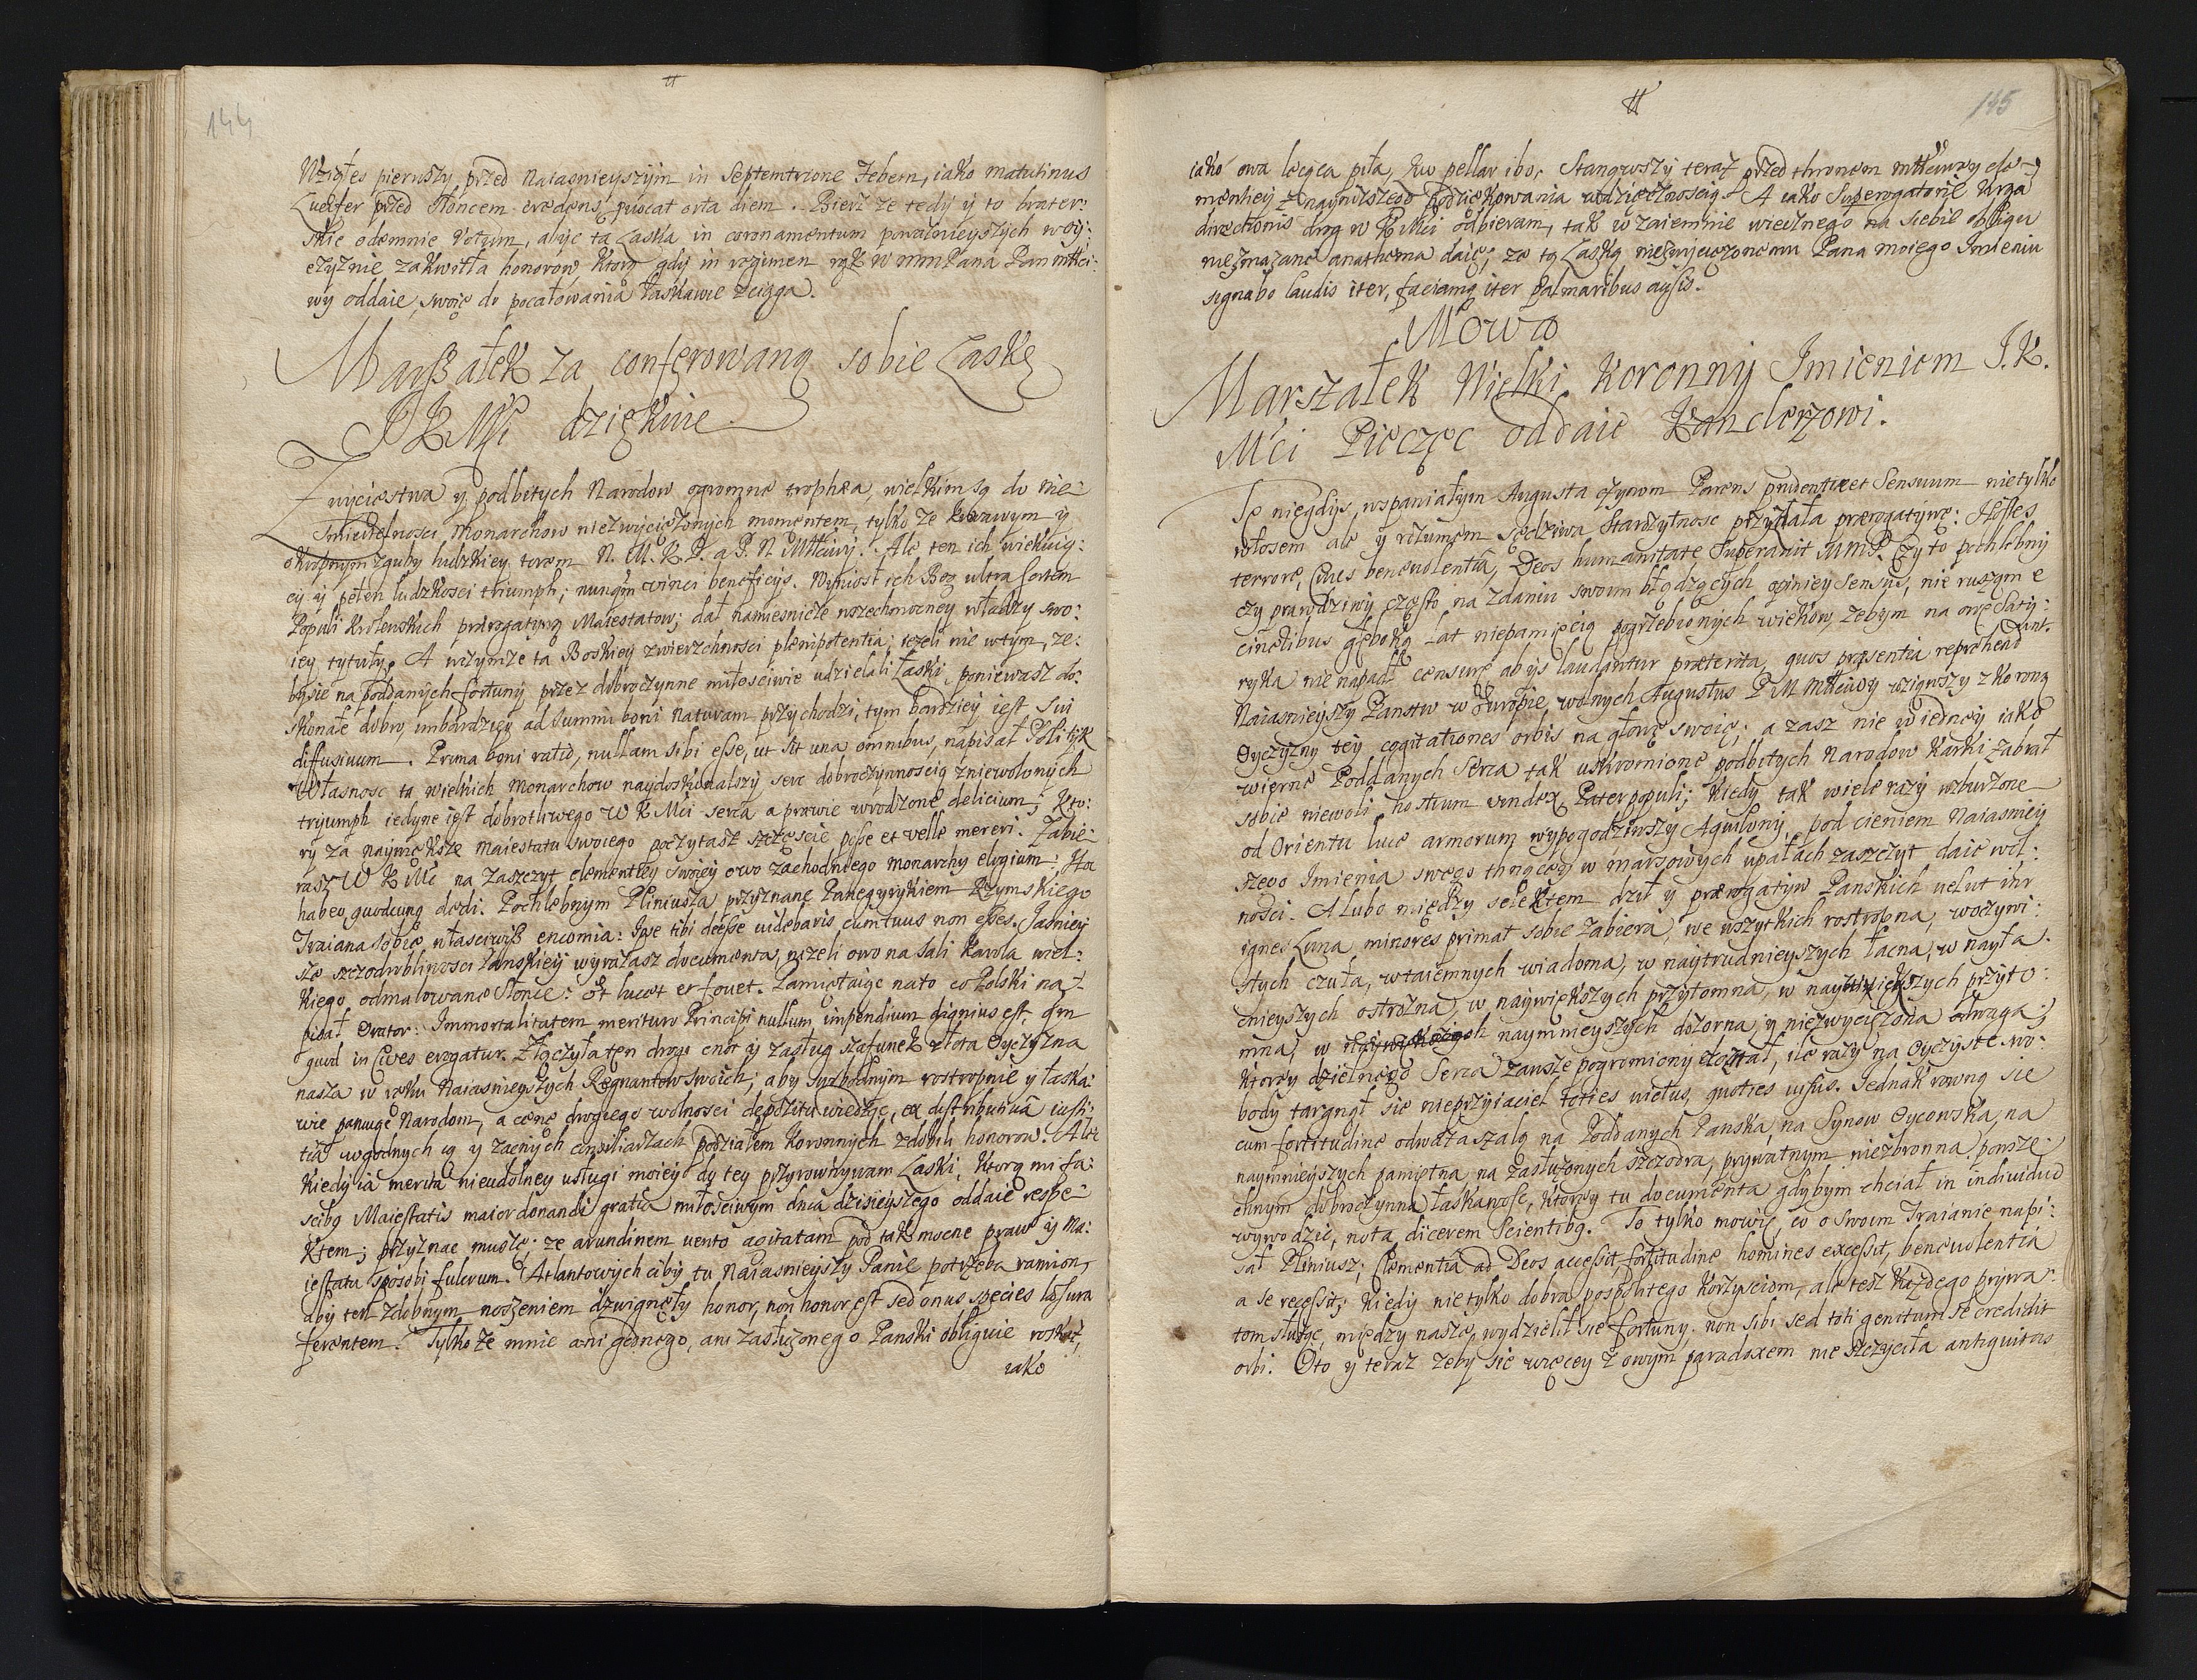 144
Wziąłes pierwszy przed Naiasnieyszym in Septemtrione Febem, iako matutinus
Lucifer przed Słoncem credens, provocat orta diem. Bierz ze tedy y to brater:
skie odemnie Votum, abyc ta Laska in coronamentum powaznieyszych w oy:
czyznie zakwitła honorow, ktorą gdy in regimen rąk W mm Pana Pan młci:
wy oddaie, swoię do pocałowania łaskawie sciąga.
Marszałek za conferowaną sobie Laskę
J K Mci dziękuie
Zwycięstwa y podbitych Narodow ogromne trophæa, wielkim są do nie
smiertelnosci Monarchow niezwyciężonych momentem, tylko ze krwawym y
okropnym zguby ludzkiey torem N. M. K. P. a P. N. Młciwy. Ale ten ich wiekuią:
cy y pełen ludzkosci triumph; nunqm vinci beneficijs. Wyniosł ich Bog ultra sortem
Populi Krolewskich prærogatywą Maiestatow; dał namiesnicze wszechmocney władzy swo:
iey tytuły. A w czymze ta Boskiey zwierzchnosci plenipotentia; iezeli nie w tym, ze:
bysie na poddanych fortuny przez dobroczynne miłosciwie udzielali Laski, poniewasz do:
skonałe dobro, im bardziey ad summi boni naturam przychodzi, tym bardziey iest sui
diffusivum. Prima boni ratio, nullam sibi esse, ut sit una omnibus, napisał Polityk
Własnosc ta wielkich Monarchow naydoskonalszy serc dobroczynnoscią zniewolonych
tryumph iedyne iest dobrotliwego W K Mci serca a prawie wrodzone delicium; kto:
ry za naywiększe Maiestatu swoiego poczytasz szczęscie posse et velle mereri. Zabie
rasz W K Mc na zaszczyt clementiey swoiey owo zachodniego monarchy elogium: Hoc
habeo, quodcunq dedi. Pochlebnym Pliniusza przyznane Panegyrykiem Rzymskiego
Traiana sobie własciwisz encomia: Ipse tibi deesse videbaris, cum tuus non esses. Jasniey
sze szczodrobliwosci Panskiey wyrazasz documenta, nizeli owo na sali Karola wiel:
kiego odmalowane słonce: et lucet et fovet. Pamiętaiąc na to co Polski na
pisał Orator: Immortalitatem merituro Principi nullum impendium dignius est qm
quod in Cives erogatur. Złączyła ten drogi cnot y zasług szafunek złota Oyczyzna
nasza w ręku Naiasnieyszych Regnantow swoich; aby swobodnym roztropnie y łaska:
wie panuiąc Narodom, a cenę drogiego wolnosci depozitu wiedząc, ex distributiva iusti:
tia w godnych ią y zacnych consiliarzach podziałem Koronnych zdobili honorow. Ale
kiedy ia merita nieudolney usługi moiey do tey przyrownywam Laski, ktorą mi fa:
scibg Maiestatis maior donandi gratia miłosciwym dnia dzisieyszego oddaie respe
ktem; przyznac muszę; ze arundinem vento agitatam pod tak mocne praw y Ma:
iestatu sposobi fulcrum. Atlantowych ciby tu Naiasnieyszy Panie potrzeba ramion,
aby ten zdobnym noszeniem dzwignęły honor, non honor est sed onus species læsura
ferentem. Tylko ze mnie ani godnego, ani zasłużonego Panski obliguie roskaz,
iako
145
iako owa lecąca piła, quo pellar ibo. Stanąwszy teraz przed thronem młciwey cle
mentiey z nayniższego podziękowania wdzięcznoscią. A iako Superogatorie Virga
directionis drog W K Mci odbieram, tak wzaiemnie wiecznego na siebie obligu
niezmazane anathema daię; ze tą Laską niezwyciężonemu Pana moiego Imieniu
signabo laudis iter, faciamq iter palmaribus ausis.
Mowa
Marszałek Wielki Koronny Imieniem J. K.
Mci Pieczęc oddaie Kanclerzowi.
Te niegdys wspaniałym Augusta czynom Parens prudentiæ et Sensuum nie tylko
włosem ale y rozumem sędziwa Starozytnosc przydała prærogatywę: Hostes
terrore, Cives benevolentia, Deos humanitate Superavit M M P. Czy to pochlebny
czy prawdziwy często na zdaniu swoim błądzących opiniey Sensus, nie ruszam e
cineribus głęboką Lat niepamięcią pogrzebionych wiekow, zebym na owę Saty:
ryka nie napadł censurę ab ijs laudantur præterita, quos præsentia reprehend
unt.
Naiasnieyszy Panstw w Europie wolnych Augustus P M Młciwy wziąwszy z Koroną
Oyczyzny tey cogitationes orbis na głowę swoię; a zasz nie w iedney iako
wierne Poddanych Serca tak uskromione podbitych Narodow karki zabrał
sobie niewoli hostium vindex Pater populi; kiedy tak wiele razy wzburzone
od Orientu luce armorum wypogodziwszy Aquilony, pod cieniem Naiasniey
szego Imienia swego thnącey w marsowych upałach zaszczyt daie wol:
nosci. A lubo między selektem dził y prærogatyw Panskich velut inr
ignes Luna minores primat sobie zabiera, we wszytkich rostropna, w oczywi:
stych czuła, w taiemnych wiadoma, w naytrudnieyszych łacna, w nayła:
cnieyszych ostrożna, w naywiększych przytomna, w naywiększych przyto:
mna, w naymnieyszych dozorna, y niezwyciężona odwaga;
ktorey dzielnego Serca zawsze pogromiony doznał, ile razy na Oyczyste swo:
body targnął się nieprzyiaciel toties victus, quoties visus. Jednak rowną się
cum fortitudine odważa szalą na Poddanych Panska, na Synow Oycowska, na
naymnieyszych pamiętna, na zasłużonych szczodra, prywatnym niezbronna powsze:
chnym dobroczynna łaskawosc, ktorey tu documenta gdybym chciał in individuo
wywodzic, nota dicerem scientibg. To tylko mowię, co o swoim Traianie napi:
sał Pliniusz; Clementia ad Deos accessit, fortitudine homines excessit, benevolentia
a se recessit; kiedy nie tylko dobra pospolitego korzysciom, ale tesz każdego prywa:
tom słuząc, między nasze wydzielił się fortuny. non sibi sed toti genitum se credidit
orbi. Oto y teraz zeby się więcey z owym paradoxem nie szczyciła antiquitas